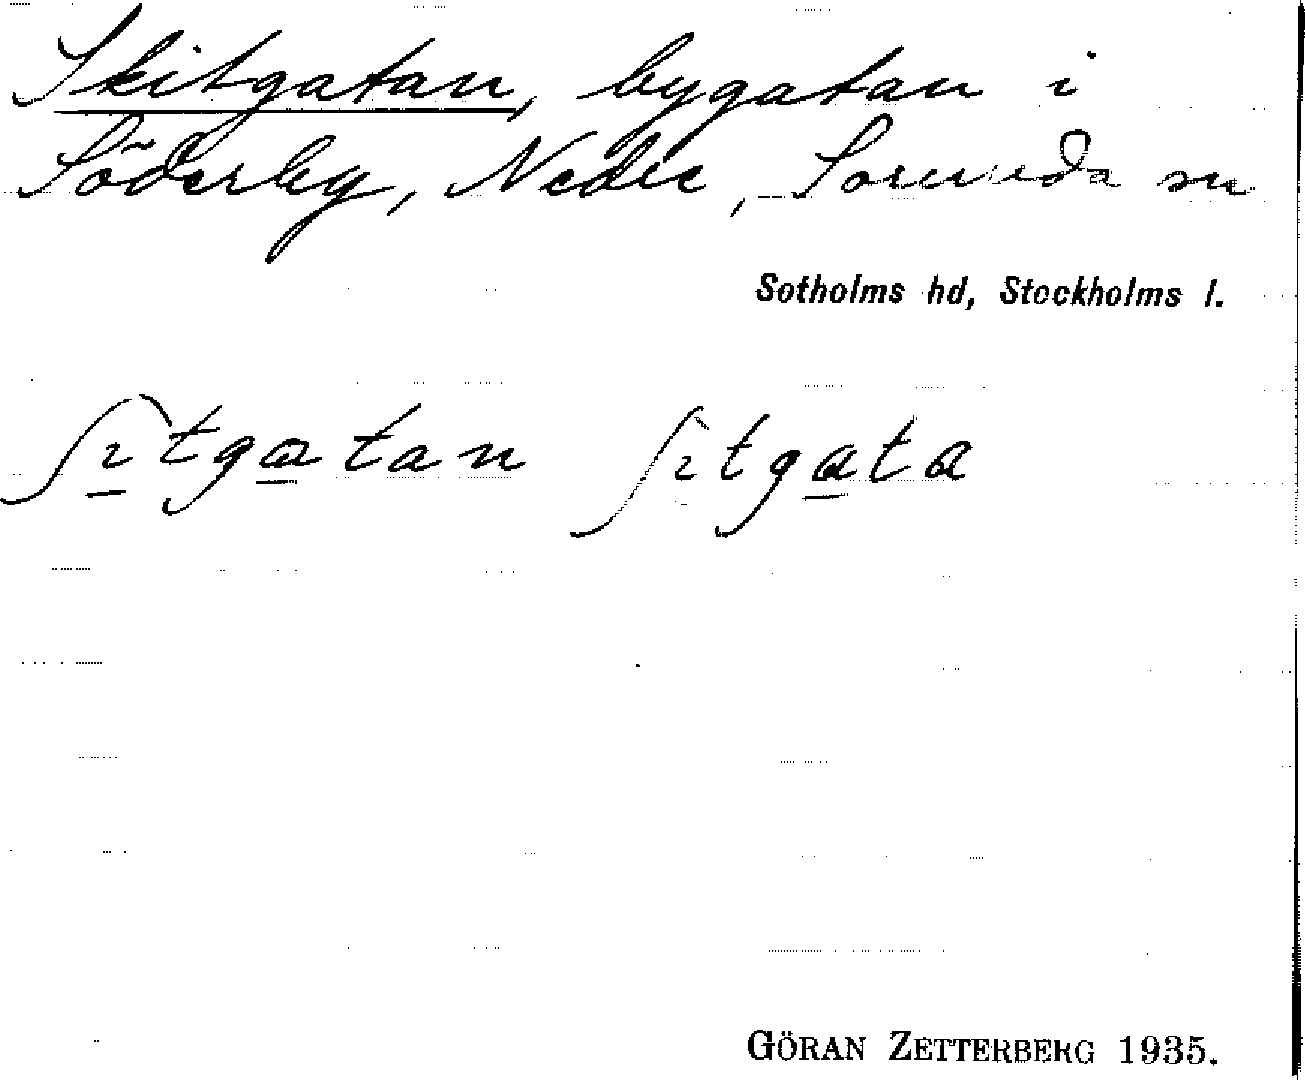 Skitgatan, bygatan i
Söderby, Nedre, Sorunda sn
Sotholms hd, Stockholms l.
ʃıtgatan ʃıtgata
GÖRAN ZETTERBERG 1935.